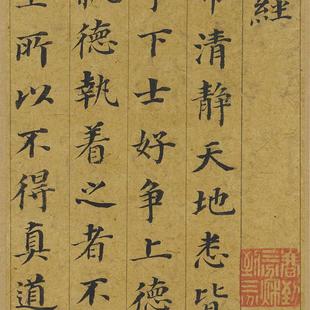 經
清静天地悉皆
下士好争上德
德執着之者不
所以不得真道